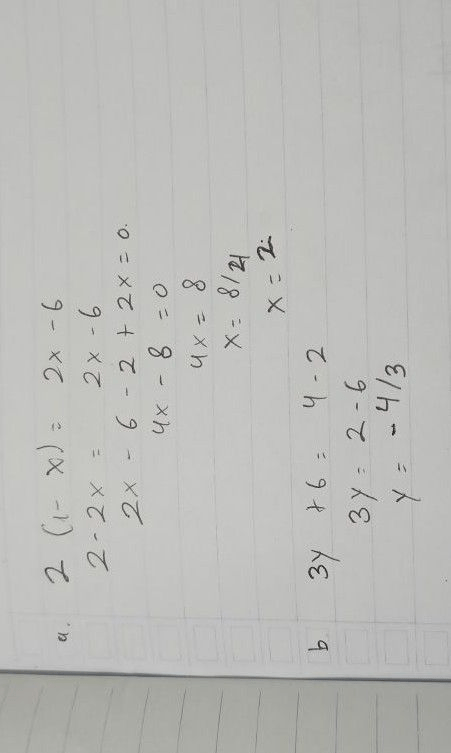 a. 2 (1 - x) = 2x - 6
2 - 2x = 2x - 6
2x - 6 - 2 + 2x = 0.
4x - 8 = 0
4x = 8
x = 8/4
x = 2
b. 3y + 6 = 4 - 2
3y = 2 - 6
y = - 4/3